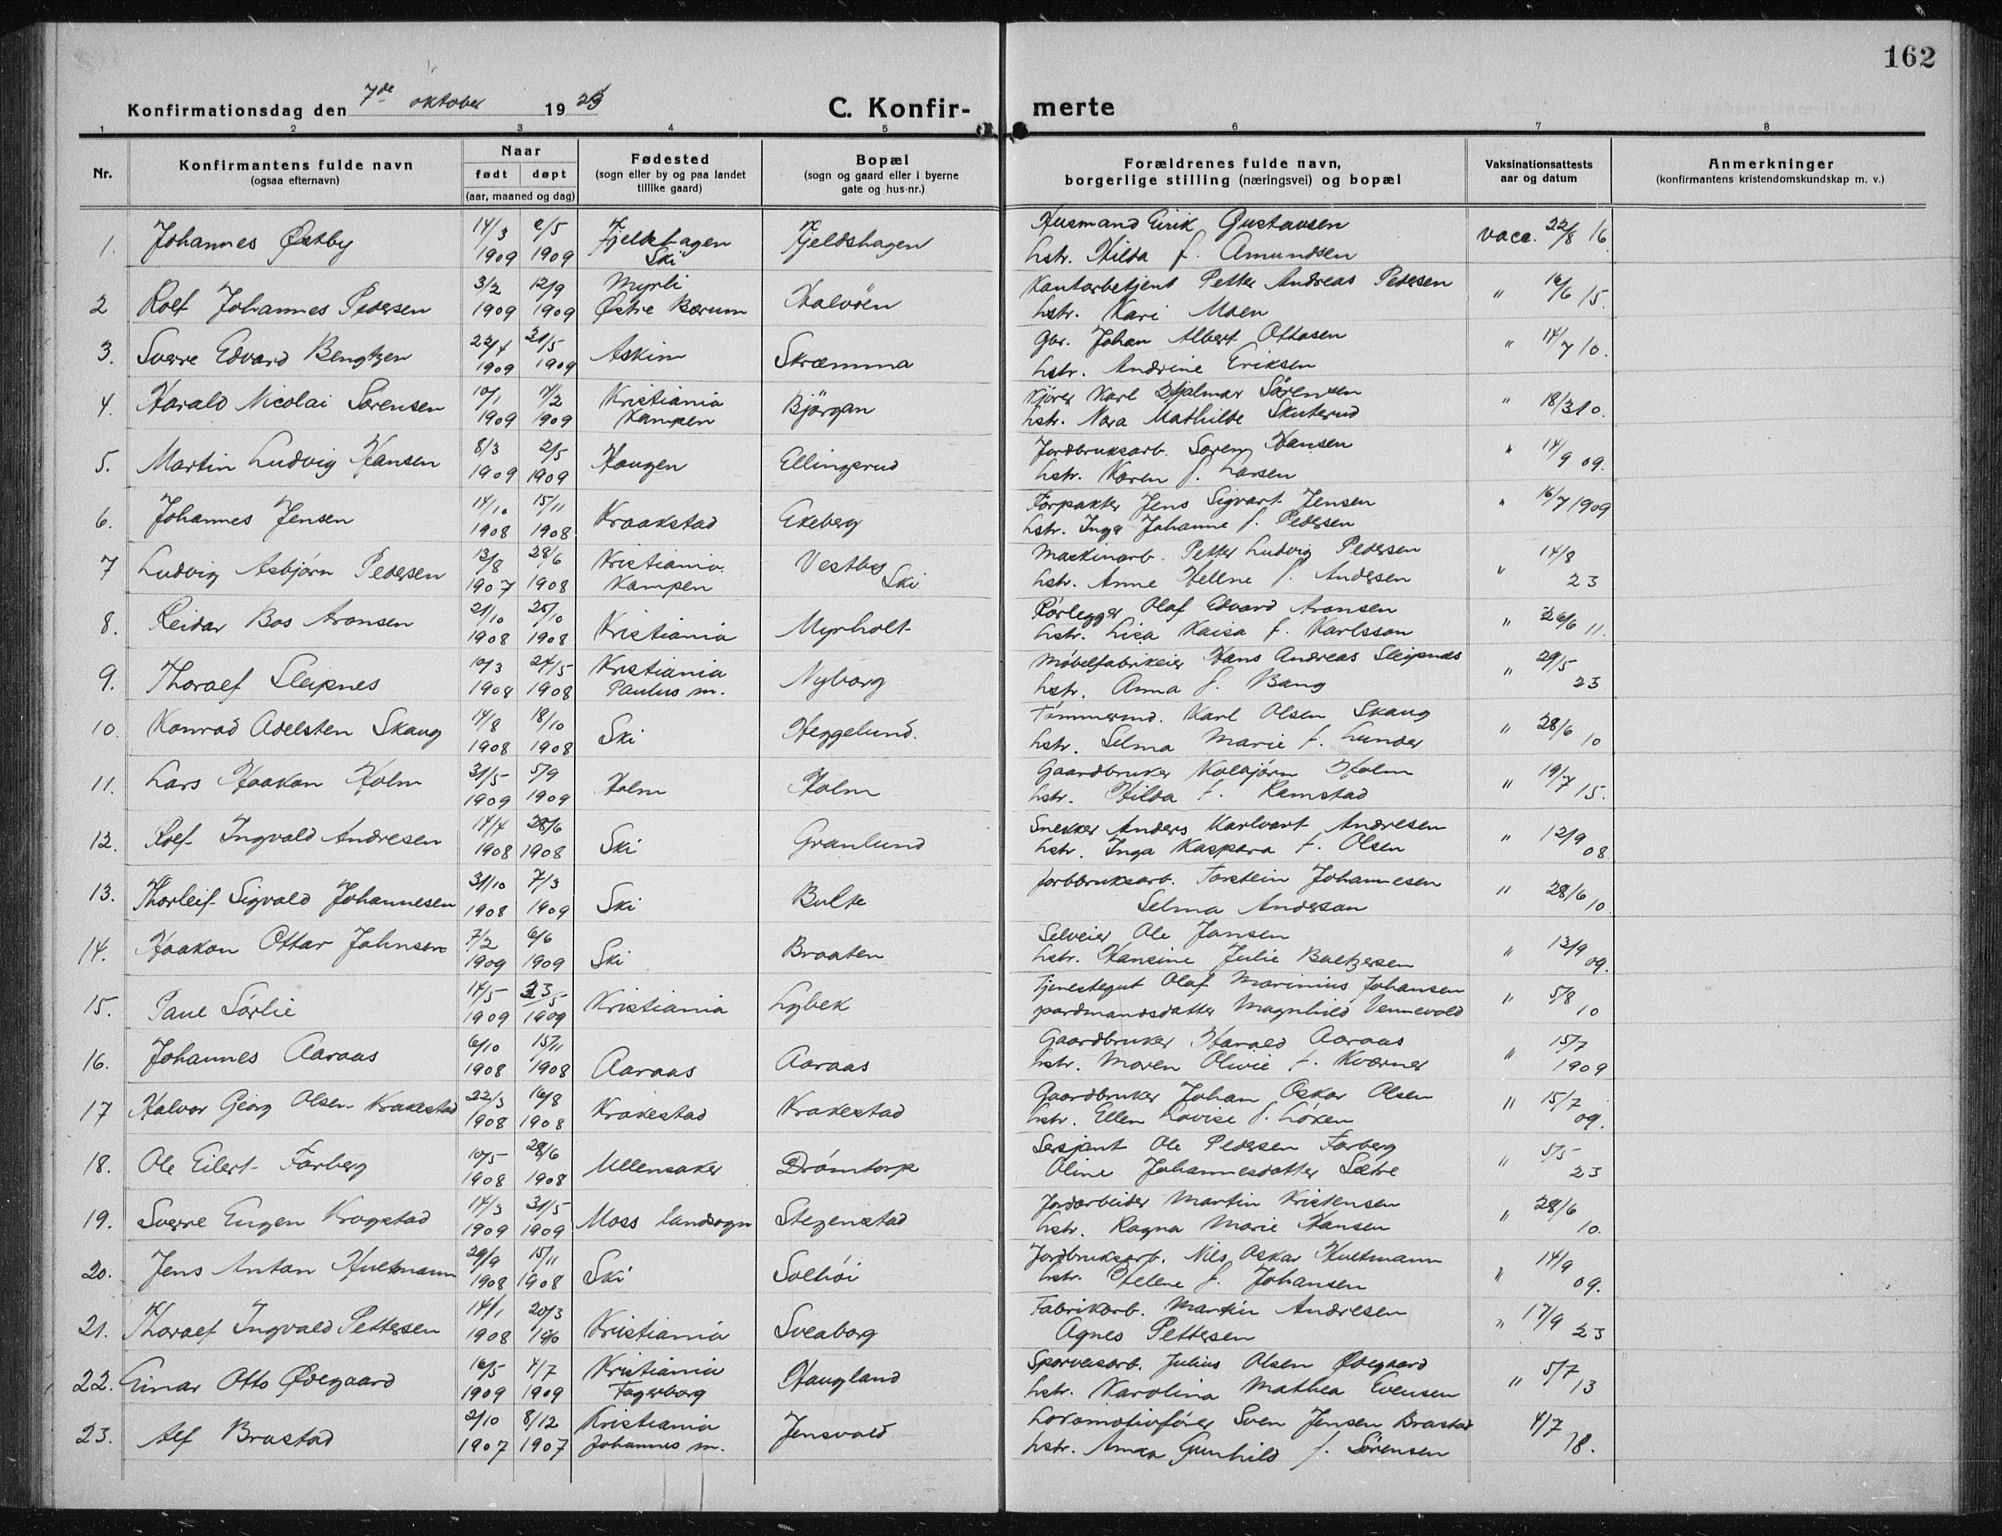 162
Konfirmationsdag den 7de oktober 1923
C. Konfirmerte
1 2 3 4 5 6 7 8
Nr. Konfirmantens fulde navn (ogsaa efternavn) Naar født døpt (aar, maaned og dag) Fødested (sogn eller by og paa landet tillike gaard) Bopæl (sogn og gaard eller i byerne gate og hus-nr.) Forældrenes fulde navn, borgerlige stilling (næringsvei) og bopæl Vaksinationsattests aar og datum Anmerkninger (konfirmantens kristendomskundskap m. v.)
1. Johannes Østby 14/3 1909 2/5 1909 Kjeldshagen Ski Kjeldshagen Husmand Eirik Gustavsen hstr. Hilda f. Amundsen vacc. 22/8 16.
2 Rolf Johannes Pedersen 3/2 1909 12/9 1909 Myrli Østre Bærum Halvöen Kantorbetjent Petter Andreas Pedersen hstr. Kari Moen " 16/6 15.
3. Sverre Edvard Bengtzen 22/4 1909 31/5 1909 Askim Skræmma Gbr. Johan Albert Ottosen hstr. Andrine Eriksen " 14/7 10.
4. Harald Nicolai Sørensen 10/1 1909 14/2 1909 Kristiania Kampen Bjørgan Kjører Karl Hjalmar Sörensen hstr. Nora Mathilde Skuterud " 18/3 10.
5. Martin Ludvig Hansen 8/3 1909 2/5 1909 Haugen Ellingsrud Jordbruksarb. Soren Hansen hstr. Karen f. Larsen " 14/9 09.
6. Johannes Jensen 14/10 1908 15/11 1908 Kraakstad Ekeberg Forpakter Jens Sigvart Jensen hstr. Inga Johanne f. Pedersen " 16/7 1909
7 Ludvig Asbjørn Pedersen 13/8 1907 28/6 1908 Kristiania Kampen Vestby Ski Maskinarb. Petter Ludvig Pedersen hstr. Anne Hellne f. Andersen " 14/8 23
8. Reidar Bos Aronsen 21/10 1908 25/10 1908 Kristiania Myrholt Rørlegger Olaf Edvard Aronsen hstr. Lisa Kaisa f. Karlsson " 26/6 11.
9. Thoralf Sleipnes 10/3 1908 24/5 1908 Kristiania Paulus m. Nyborg Møbelfabrikeier Hans Andreas Sleipnes hstr. Anna f. Bang " 29/5 23
10. Konrad Adelsten Skaug 14/8 1908 18/10 1908 Ski Heggelund. Tømmermd. Karl Olsen Skaug hstr. Selma Marie f. Lunder " 28/6 10
11. Lars Haakon Holm 31/5 1909 5/9 1909 Holm Holm Gaardbruker Kolbjørn Holm hstr. Hilda f. Ramstad " 19/7 15.
12. Rolf Ingvald Andresen 14/4 1908 28/6 1908 Ski Granlund Snekker Anders Karlvart Andresen hstr. Inga Kaspara f. Olsen " 12/9 08
13. Thorleif Sigvald Johannesen 31/10 1908 7/3 1909 Ski Bulte Jorbbruksarb. Torstein Johannesen Selma Anderson " 28/6 10
14. Haakon Ottar Johnsen 7/2 1909 6/6 1909 Ski Braaten Selveier Ole Jonsen hstr. Hansine Julie Baltzersen " 13/9 09.
15. Paul Sørlie 14/5 1909 23/5 1909 Kristiania Lybek Tjenestegut Olaf Marinius Johansen gardmandsdatter Magnhild Vennevold " 5/8 10
16. Johannes Aaraas 6/10 1908 15/11 1908 Aaraas Aaraas Gaardbruker Harald Aaraas hstr. Maren Olivie f. Kværner " 15/7 1909
17 Halvor Georg Olsen Krakestad 22/3 1908 16/8 1908 Krakestad Krakestad Gaardbruker Johan Oskar Olsen hstr. Ellen Lovise f. Løken " 15/7 09.
18. Ole Eilert Farberg 10/5 1908 28/6 1908 Ullensaker Drømtorp Sersjant Ole Pedersen Farberg Oline Johannesdatter Sætre " 5/5 23
19. Sverre Eugen Krogstad 14/3 1909 31/5 1909 Moss landsogn Stegenstad Jordarbeider Martin Kristensen hstr. Ragna Marie Hansen " 28/6 10.
20. Jens Anton Hultmann 29/9 1908 15/11 1908 Ski Solhöi Jordbruksarb. Nils Oskar Hultmann hstr. Hellne f. Johansen " 14/9 09.
21. Thoralf Ingvald Pettersen 14/1 1908 20/3 Kristiania Sveaborg Fabrikarb. Martin Andresen Agnes Pettersen " 17/9 23
22. Einar Otto Ødegaard 16/5 1909 4/7 1909 Kristiania Fagerborg Haugland Sporveisarb. Julius Olsen Ødegaard hstr. Karolina Mathea Evensen " 5/7 13
23. Alf Brastad 2/10 1907 8/12 1907 Kristiania Johannes m. Jensvold Lokomotivfører Sven Jensen Brastad hstr. Anna Gunhild f. Sørensen 4/7 18.